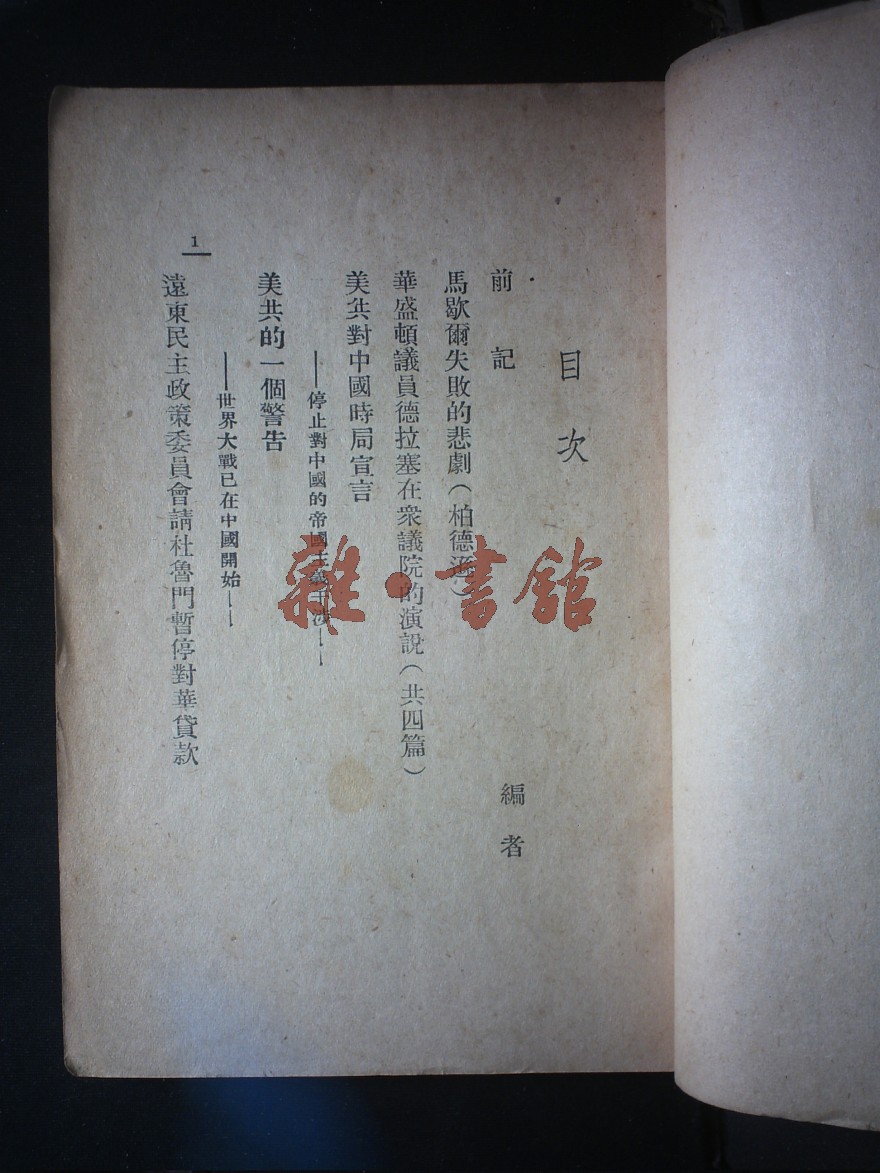 目次
前記　編者
馬歇爾失敗的悲劇（柏德遜）
華盛頓議員德拉塞在衆議院的演說（共四篇）
美共對中國時局宣言
——停止對中國的帝國主義干涉——
美共的一個警告
——世界大戰已在中國開始——
遠東民主政策委員會請杜魯門暫停對華貸款
1
雜·書館